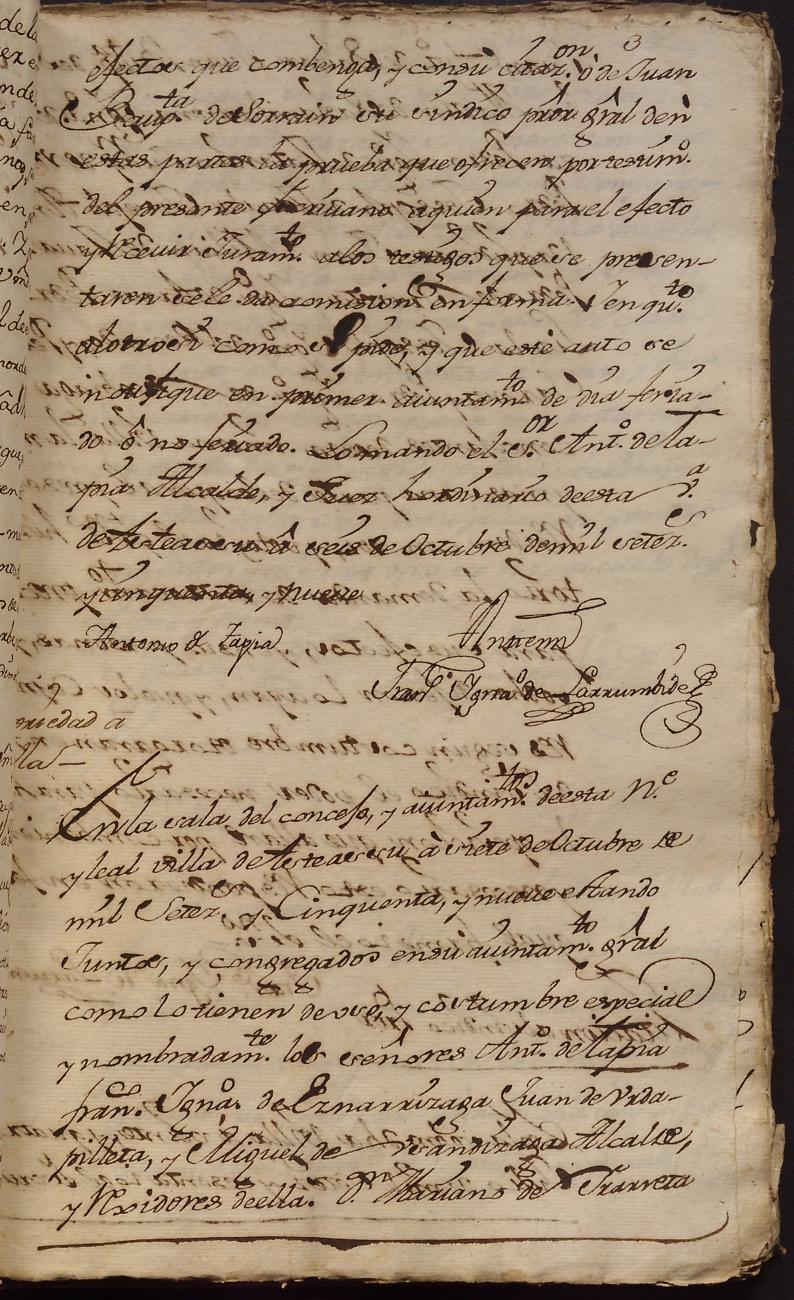 3
efectos que combenga, y con su citaz.on ó de Juan
Baup.ta de Sorrain su sindico pror gral den
estas partes la prueba que ofrecen por testim.o
del presente escriuano aquien para el efecto
y Receuir Juram.to alos testigos que se presen-
taren se le da comision en forma Yenqu.to
alotrosi como se pide, y que este auto se
notifique en primer aiuntam.to de dia feria-
do ô no feriado. Lo mando el s.or Ant.o de Ta-
pia Alcalde, y Juez hordinario de esta v.a
de Asteassu â seis de Octubre de mil setez.s
y cinquenta, y nueve
Antonio de Tapia
Antemi
Fran.co Ignaº de Larrumbide
En la sala del concejo, y aiuntam.tos de esta N.e
y leal villa de Asteassu à siete de Octubre de
mil Setez.s y Cinquenta, y nueve estando
Juntos, y congregados en su aiuntam.to gral
como lo tienen de uso, y costumbre especial
y nombradam.te los señores Ant.o de Tapia
fran.co Igna.o de Eznarrizaga Juan de Vrda-
pilleta, y Miguel de Alcalde,
y Rexidores de ella. D.n Mariano de Ytrarreta